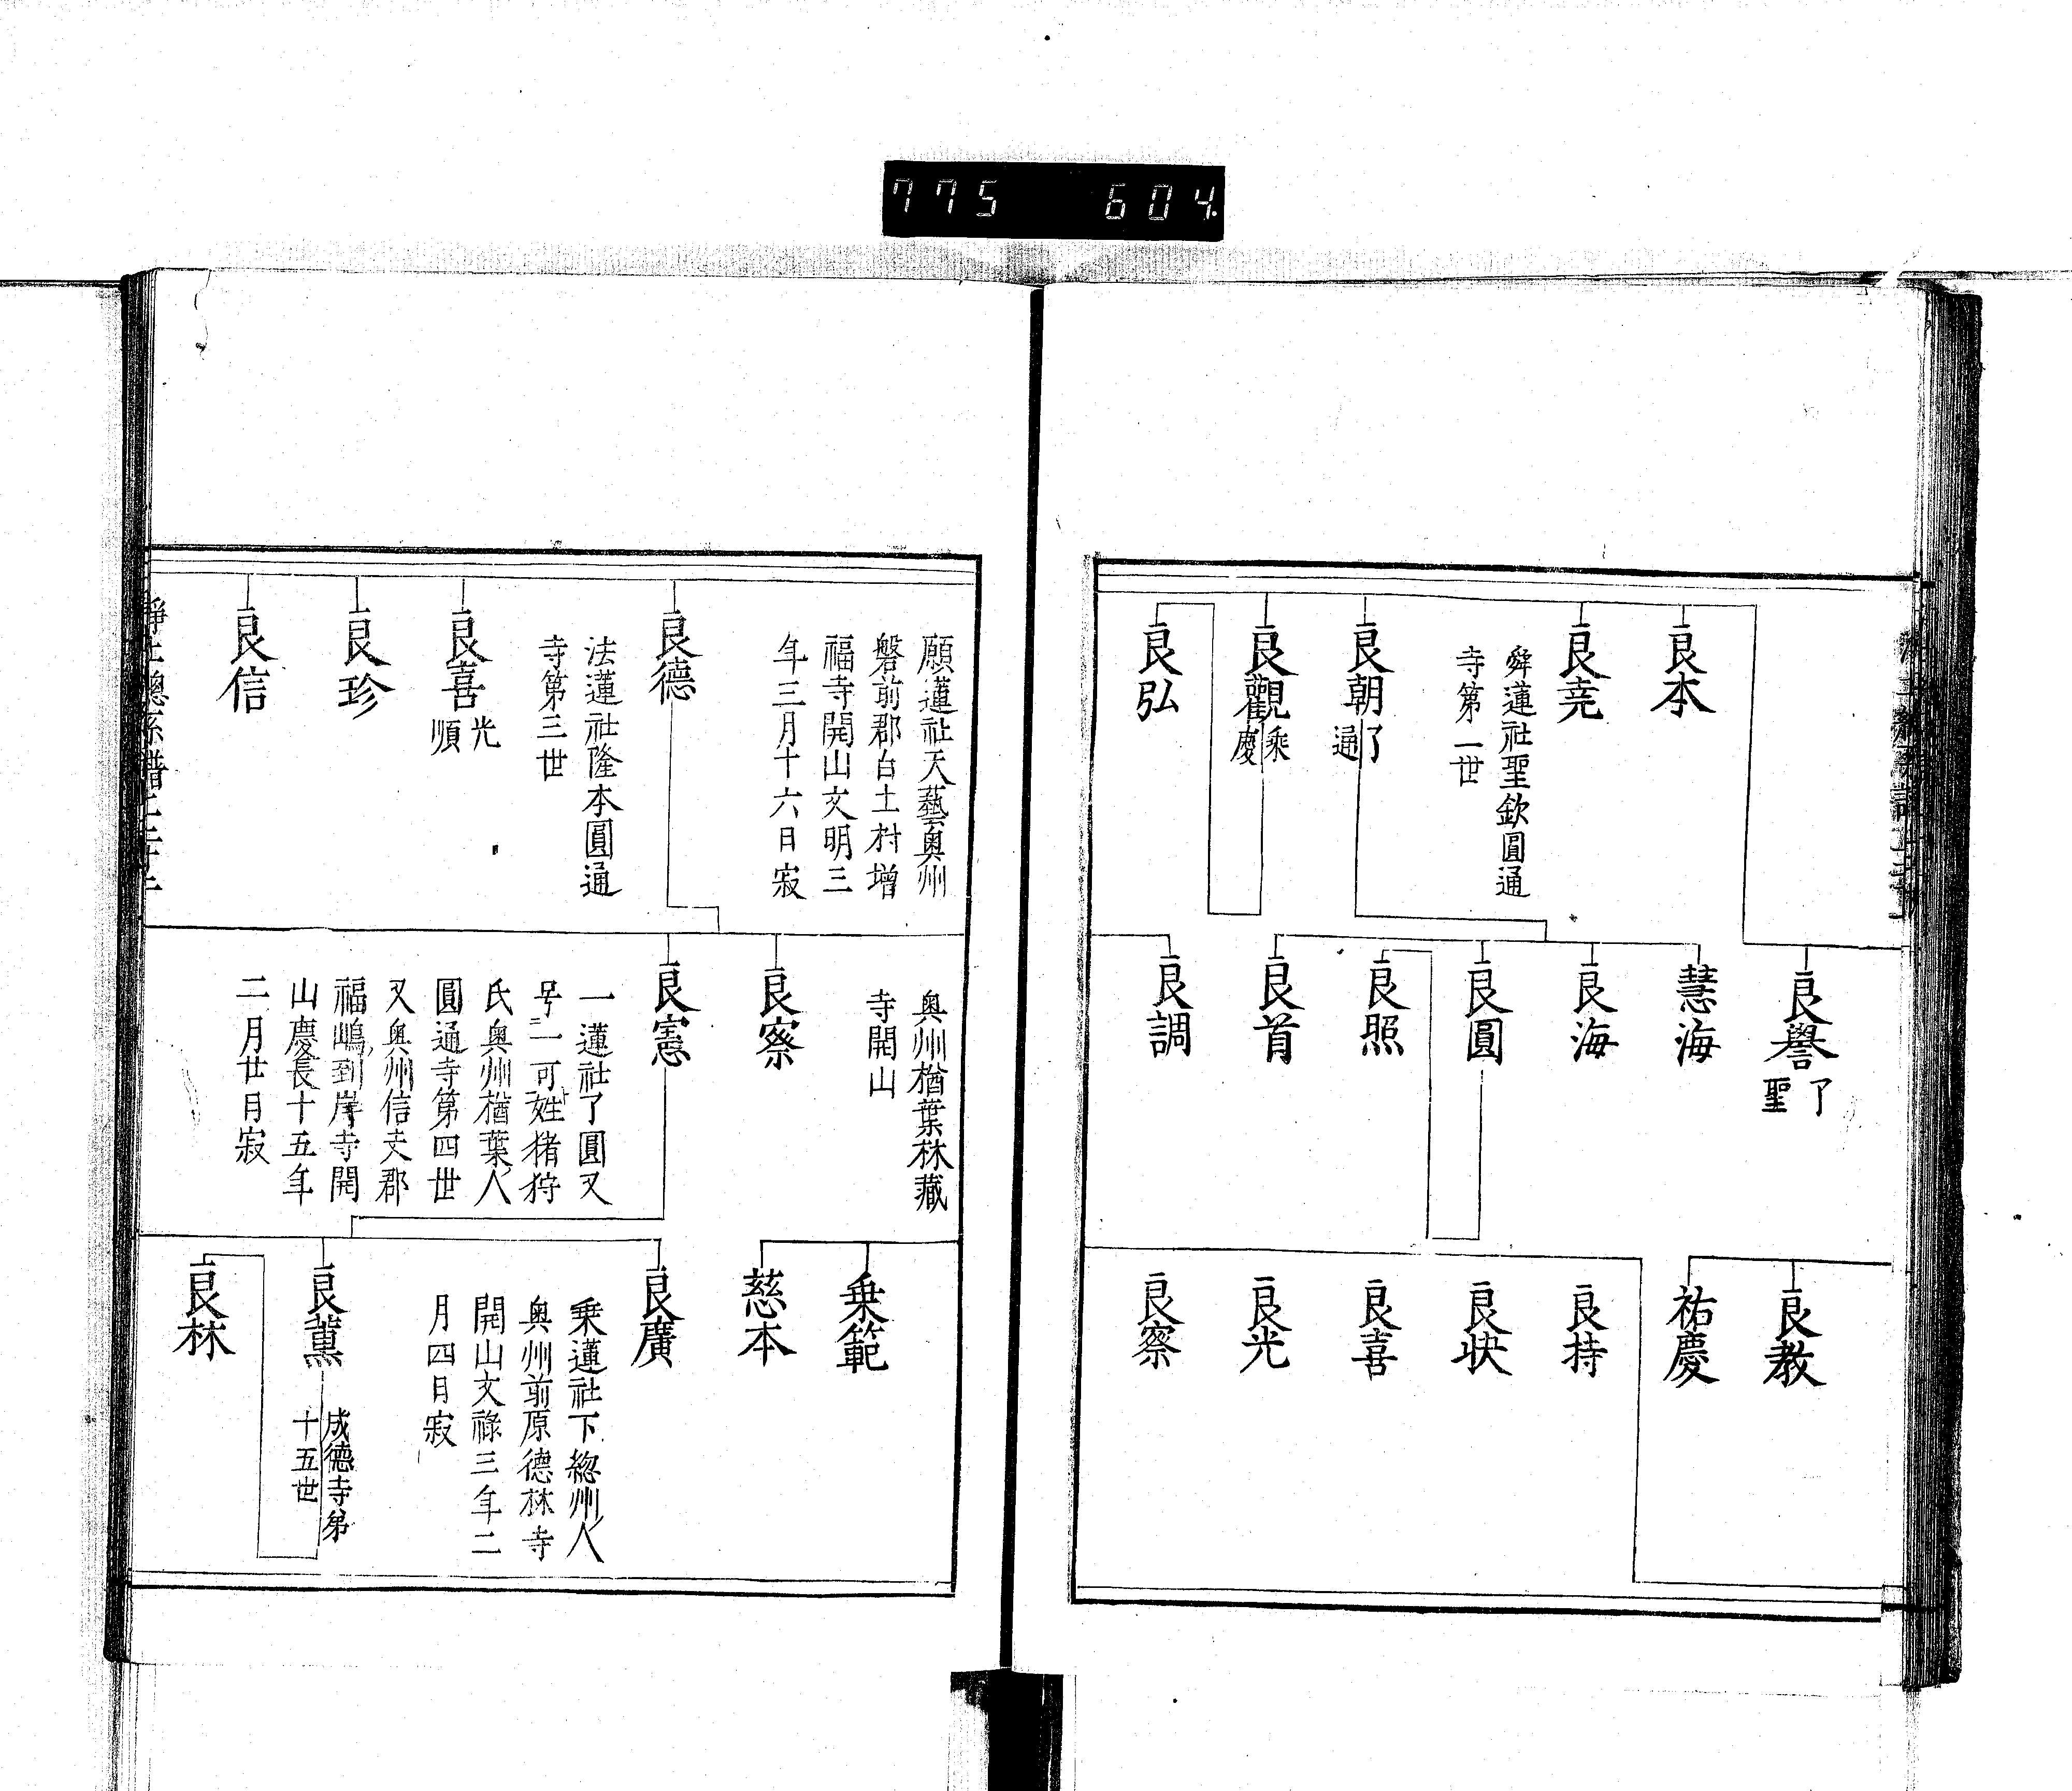 775 604
良本
良尭
舜蓮社聖欽圓通
寺第二世
良朝
了
通
良觀
乘
慶
良弘
良譽
了
聖
慧海
良海
良圓
良照
良首
良調
良教
祐慶
良持
良快
良喜
良光
良察
願蓮社天藝奥州
磐前郡白土村增
福寺開山文明三
年三月十六日寂
良德
法蓮社隆本圓通
寺第三世
良喜
光
順
良珍
良信
奥州楢葉林藏
寺開山
良察
良憲
一蓮社了圓又
号一可姓猪狩
氏奥州楢葉人
圓通寺第四世
又奥州信夫郡
福嶋到岸寺開
山慶長十五年
二月廿日寂
乗範
慈本
良廣
乗蓮社下総州人
奥州前原德林寺
開山文祿三年二
月四日寂
良薫
成德寺第
十五世
良林
淨土總系譜